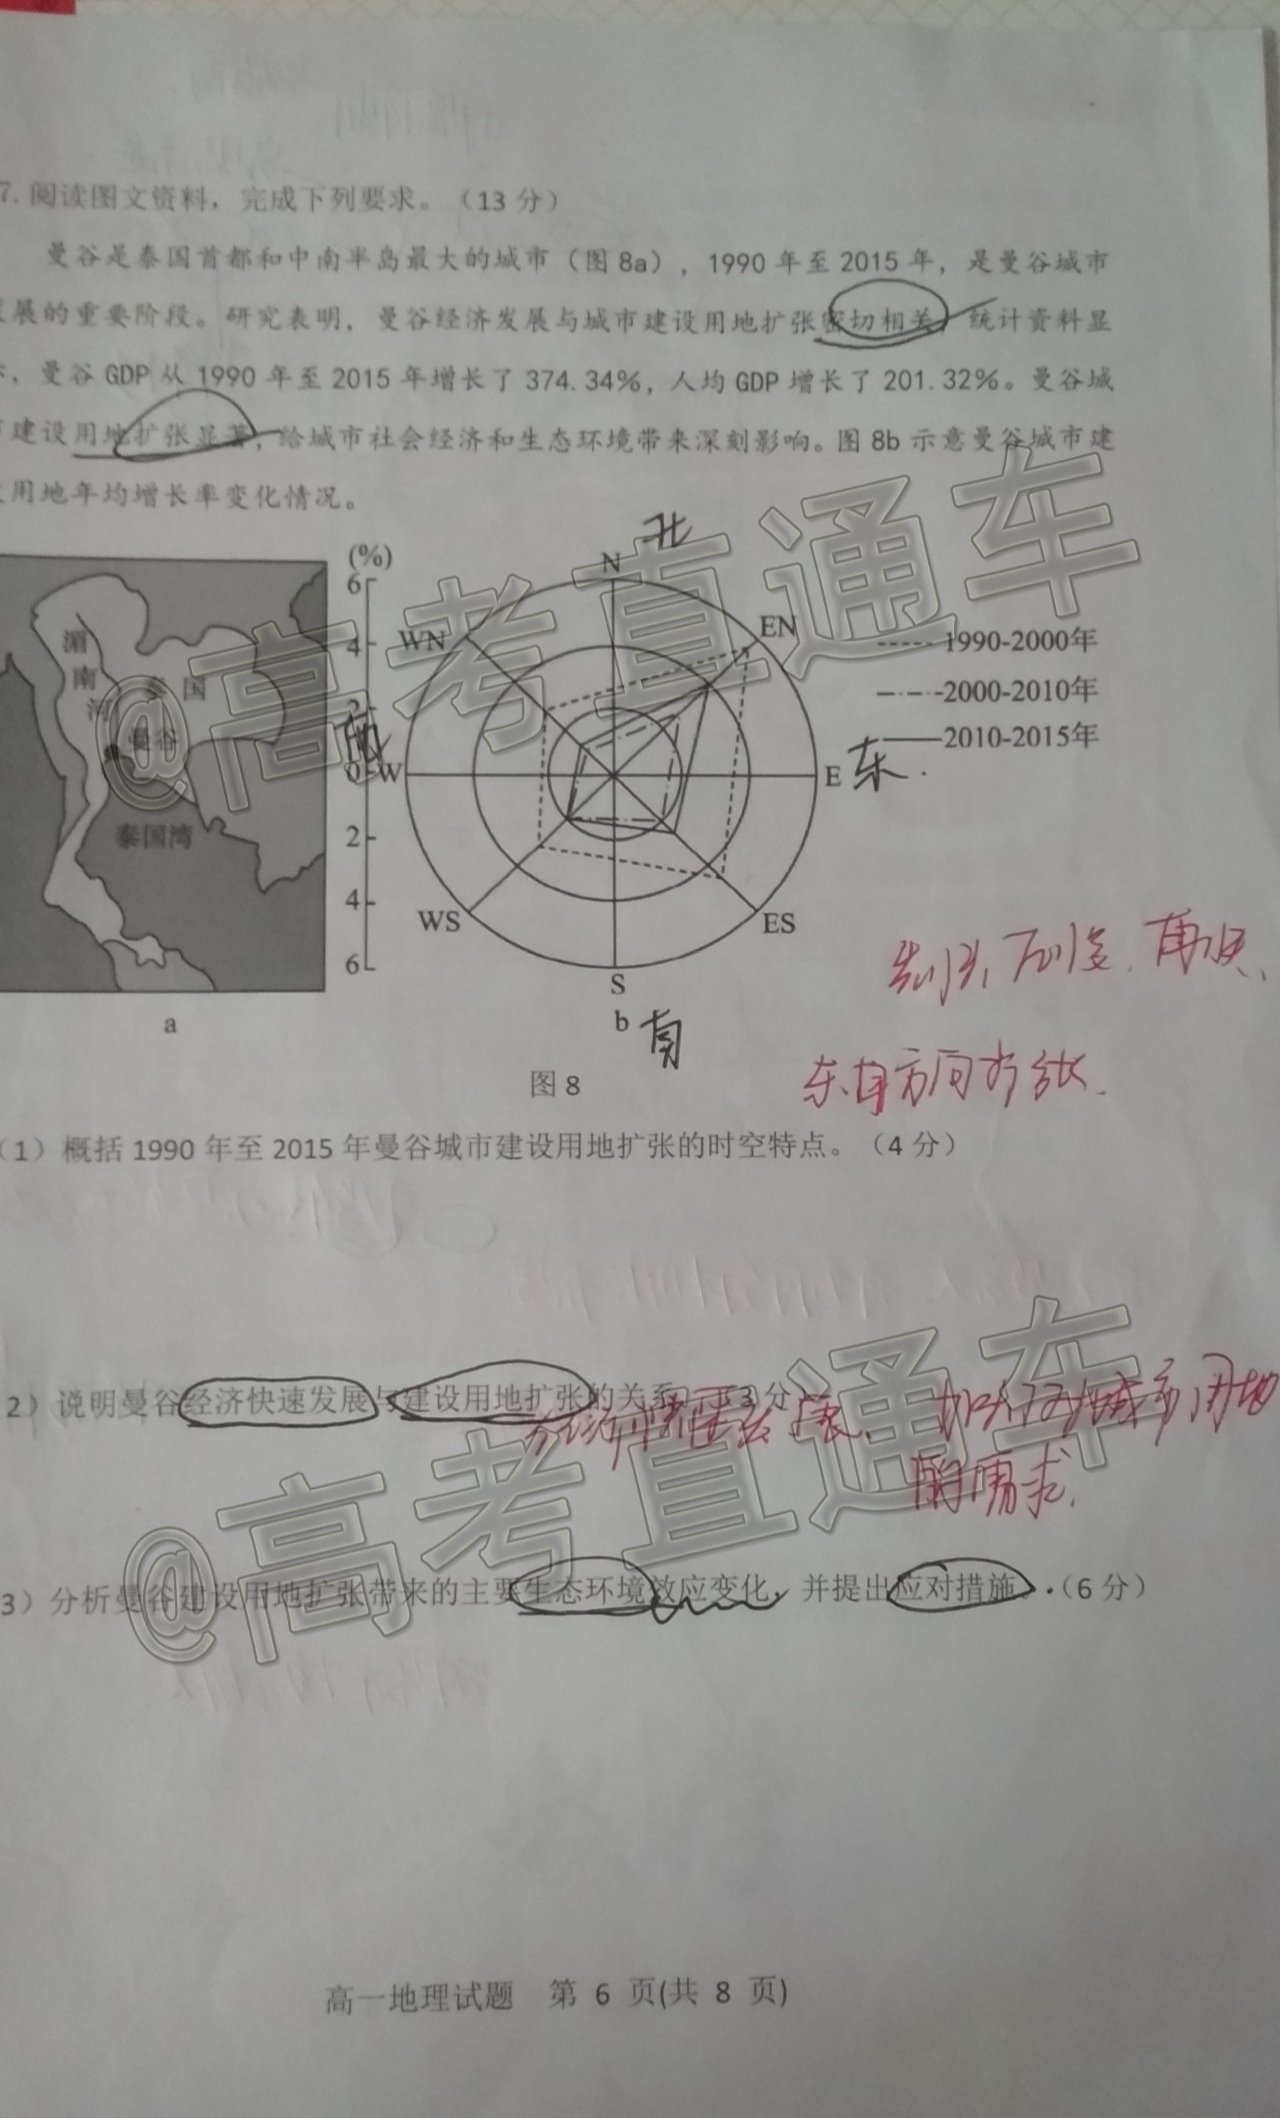 7. 阅读图文资料，完成下列要求。（13 分）
曼谷是泰国首都和中南半岛最大的城市（图 8a），1990 年至 2015 年，是曼谷城市
展的重要阶段。研究表明，曼谷经济发展与城市建设用地扩张密切相关，统计资料显
，曼谷 GDP 从 1990 年至 2015 年增长了 374.34%，人均 GDP 增长了 201.32%。曼谷城
建设用地扩张显著，给城市社会经济和生态环境带来深刻影响。图 8b 示意曼谷城市建
用地年均增长率变化情况。
湄南河
泰国
曼谷
泰国湾
a
(%)
6
4
2
0
2
4
6
北
N
WN
EN
西
W
E
东
WS
ES
S
b
南
1990-2000年
2000-2010年
2010-2015年
图 8
东南方向扩张
（1）概括 1990 年至 2015 年曼谷城市建设用地扩张的时空特点。（4 分）
2）说明曼谷经济快速发展与建设用地扩张的关系。（3 分）
加大对城市用地
的需求
3）分析曼谷建设用地扩张带来的主要生态环境效应变化，并提出应对措施。（6 分）
高一地理试题 第 6 页(共 8 页)
@高考直通车
@高考直通车